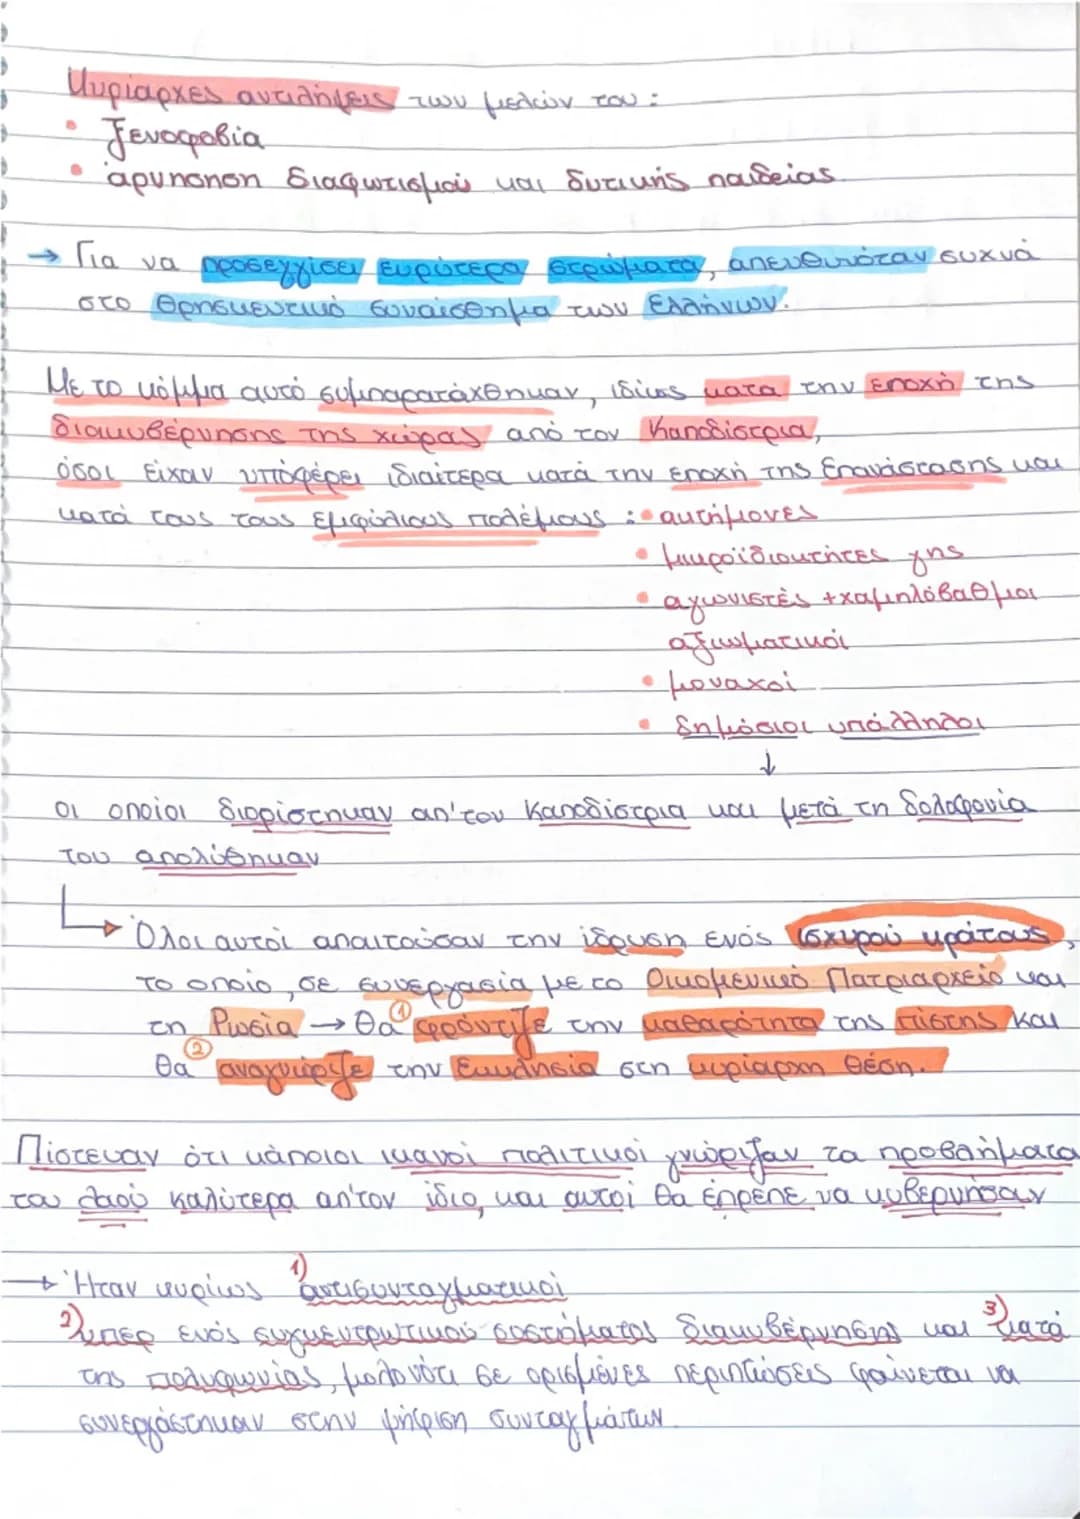 Κυρίαρχες αντιλήψεις των μελών του :
• ξενοφοβία
• άρνηση διαφωτισμού και δυτικής παιδείας.
→ Για να προσεγγίσει ευρύτερα στρώματα, απευθυνόταν συχνά
στο θρησκευτικό συναίσθημα των Ελλήνων.
Με το κόμμα αυτό συμπαρατάχθηκαν, ιδίως κατα την εποχή της
διακυβέρνησης της χώρας από τον Καποδίστρια,
όσοι είχαν υποφέρει ιδιαίτερα κατά την εποχή της Επανάστασης και
κατά τους τους εμφύλιους πολέμους : • ακτήμονες
• μικροϊδιοκτήτες γης
• αγωνιστές + χαμηλόβαθμοι
αξιωματικοί
• μοναχοί
• δημόσιοι υπάλληλοι
↓
οι οποίοι διορίστηκαν απ'τον Καποδίστρια και μετά τη δολοφονία
του απολύθηκαν
↳ Όλοι αυτοί απαιτούσαν την ίδρυση ενός ισχυρού κράτους,
το οποίο, σε συνεργασία με το Οικομενικό Πατριαρχείο και
τη Ρωσία → θα ① φρόντιζε την καθαρότητα της πίστης και
② θα αναγνώριζε την Εκκλησία στη κυρίαρχη θέση.
Πίστευαν ότι κάποιοι ικανοί πολιτικοί γνώριζαν τα προβλήματα
του λαού καλύτερα απ'τον ίδιο, και αυτοί θα έπρεπε να κυβερνήσαν
→ Ήταν κυρίως 1) αντισυνταγματικοί
2) υπέρ ενός συγκεντρωτικού συστήματος διακυβέρνησης και 3) κατά
της πολυφωνίας, μολονότι σε ορισμένες περιπτώσεις φαίνεται να
συνεργάστηκαν στην ψήφιση συνταγμάτων.